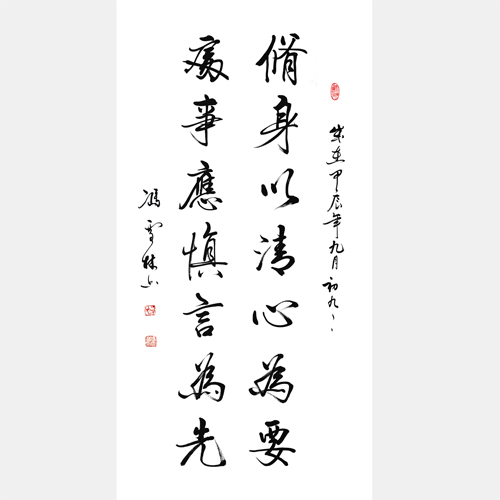 歲在甲辰年九月初九
脩身以清心為要
處事應慎言為先
馮雪林